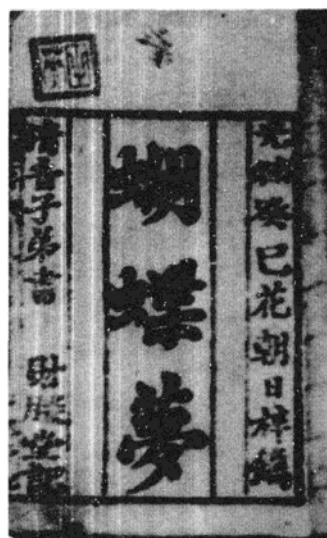 光緒癸巳花朝日梓鐫
蝴蝶夢
音子弟書 財勝堂